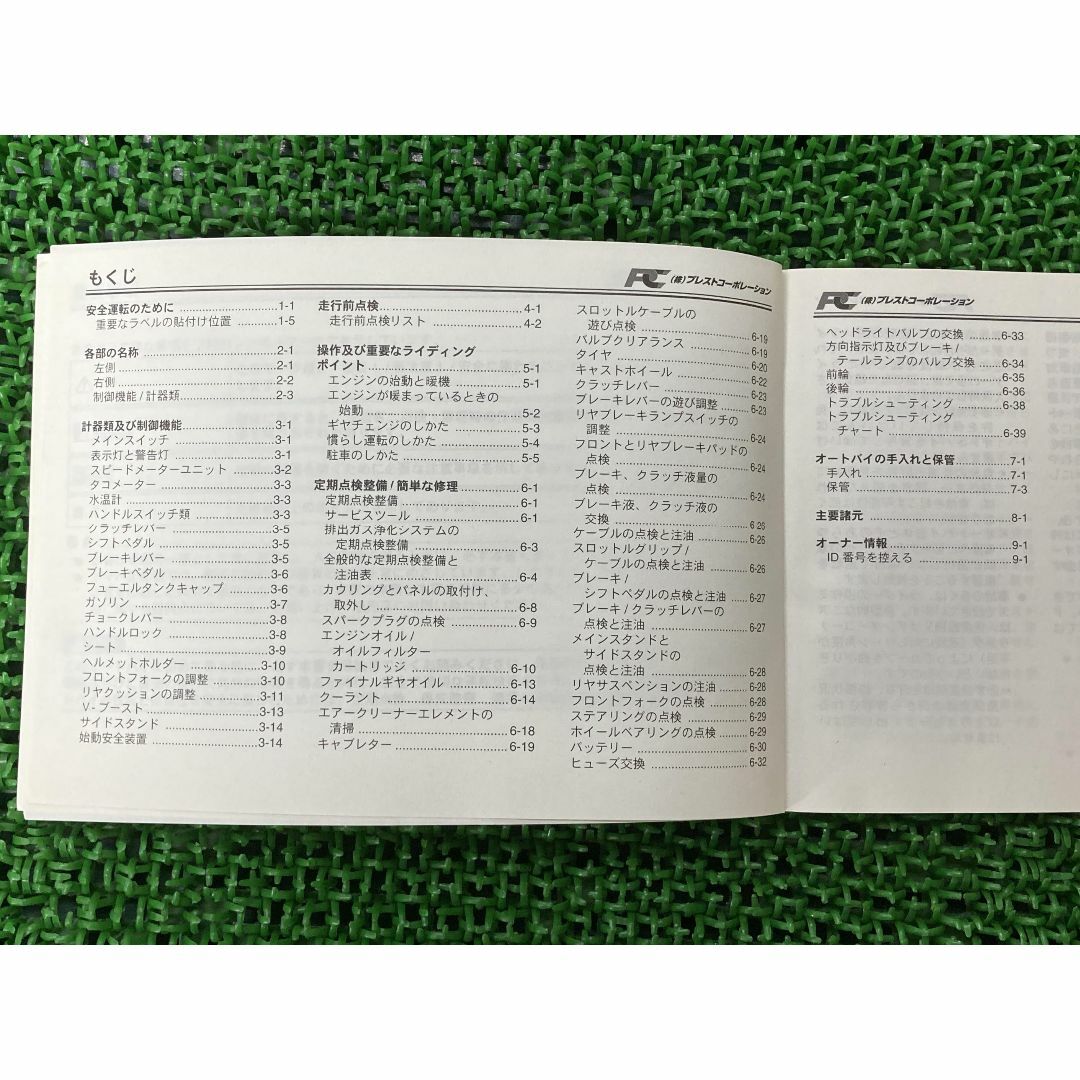 もくじ
PC (株)プレストコーポレーション
安全運転のために ........................1-1
重要なラベルの貼付け位置 ............1-5
各部の名称 ................................2-1
左側 ........................................2-1
右側 ........................................2-2
制御機能 / 計器類........................2-3
計器類及び制御機能 ......................3-1
メインスイッチ ..........................3-1
表示灯と警告灯 ..........................3-1
スピードメーターユニット ............3-2
タコメーター ..............................3-3
水温計 ......................................3-3
ハンドルスイッチ類 ....................3-3
クラッチレバー ..........................3-5
シフトペダル ..............................3-5
ブレーキレバー ..........................3-5
ブレーキペダル ..........................3-6
フューエルタンクキャップ ............3-6
ガソリン ....................................3-7
チョークレバー ..........................3-8
ハンドルロック ..........................3-8
シート ......................................3-9
ヘルメットホルダー ....................3-10
フロントフォークの調整 ..............3-10
リヤクッションの調整 ................3-11
V - ブースト................................3-13
サイドスタンド ..........................3-14
始動安全装置 ............................3-14
走行前点検....................................4-1
走行前点検リスト ........................4-2
操作及び重要なライディング
ポイント ....................................5-1
エンジンの始動と暖機 ................5-1
エンジンが暖まっているときの
始動 ......................................5-2
ギヤチェンジのしかた ................5-3
慣らし運転のしかた ....................5-4
駐車のしかた..............................5-5
定期点検整備 / 簡単な修理 ..............6-1
定期点検整備 ..............................6-1
サービスツール ..........................6-1
排出ガス浄化システムの
定期点検整備 ..........................6-3
全般的な定期点検整備と
注油表 ....................................6-4
カウリングとパネルの取付け、
取外し ....................................6-8
スパークプラグの点検 ................6-9
エンジンオイル /
オイルフィルター
カートリッジ ..........................6-10
ファイナルギヤオイル ................6-13
クーラント ................................6-14
エアークリーナーエレメントの
清掃 ......................................6-18
キャブレター ..............................6-19
スロットルケーブルの
遊び点検 ................................6-19
バルブクリアランス ....................6-19
タイヤ ......................................6-20
キャストホイール ........................6-22
クラッチレバー ..........................6-23
ブレーキレバーの遊び調整 ..........6-23
リヤブレーキランプスイッチの
調整 ......................................6-24
フロントとリヤブレーキパッドの
点検 ......................................6-24
ブレーキ、クラッチ液量の
点検 ......................................6-24
ブレーキ液、クラッチ液の
交換 ......................................6-26
ケーブルの点検と注油 ................6-26
スロットルグリップ /
ケーブルの点検と注油 ..............6-26
ブレーキ /
シフトペダルの点検と注油 ......6-27
ブレーキ / クラッチレバーの
点検と注油 ............................6-27
メインスタンドと
サイドスタンドの
点検と注油 ............................6-28
リヤサスペンションの注油 ..........6-28
フロントフォークの点検 ..............6-28
ステアリングの点検 ....................6-29
ホイールベアリングの点検 ..........6-29
バッテリー ................................6-30
ヒューズ交換 ............................6-32
PC (株)プレストコーポレーション
ヘッドライトバルブの交換 ..........6-33
方向指示灯及びブレーキ /
テールランプのバルブ交換 ......6-34
前輪 ........................................6-35
後輪 ........................................6-36
トラブルシューティング ..............6-38
トラブルシューティング
チャート ................................6-39
オートバイの手入れと保管..............7-1
手入れ ......................................7-1
保管 ........................................7-3
主要諸元 ....................................8-1
オーナー情報................................9-1
ID 番号を控える ..........................9-1